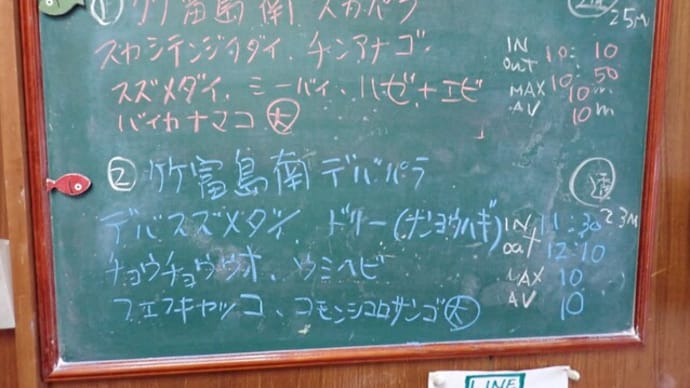 ① 竹富島南 スカパラ
25M
スカシテンジクダイ、チンアナゴ
IN 10:10
スズメダイ、ミーバイ、ハゼ+エビ
out 10:50
バイカナマコ 大
MAX 10m
AV 10m
② 竹富島南 デバパラ
デバスズメダイ、ドリー(ナンヨウハギ)
23M
IN 11:30
チョウチョウウオ、ウミヘビ
out 12:10
フエフキヤッコ、コモンシコロサンゴ 大
MAX 10
AV 10
LINE